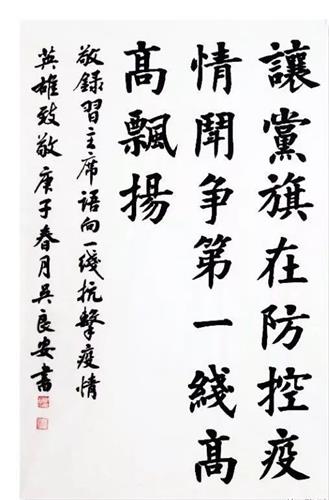 讓黨旗在防控疫
情鬥争第一綫高
高飄揚
敬録習主席语向一綫抗擊疫情
英雄致敬庚子春月吴良安書